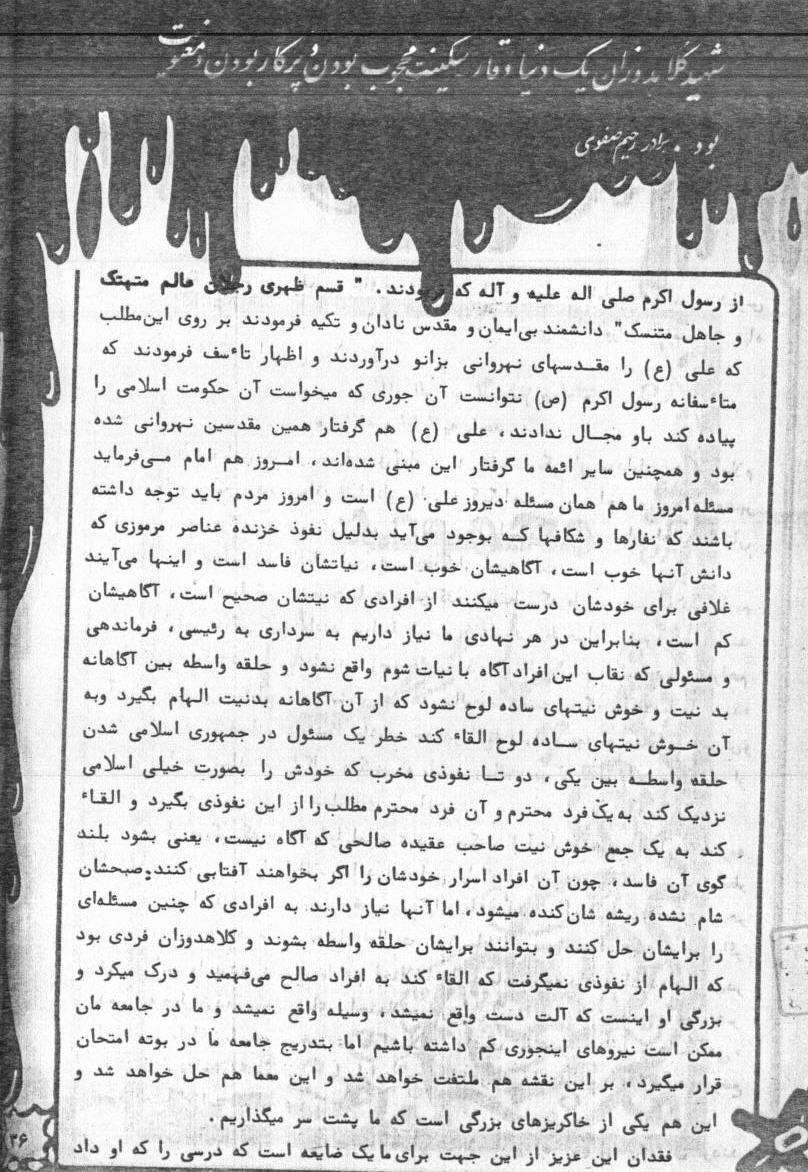 شهید کلاهدوزان یک دنیا وقار سکینت محجوب بودن و پرکار بودن و معنویت
بود. برادر رحیم صفوی
از رسول اکرم صلی اله علیه و آله که فرمودند. " قسم ظهری رجلان عالم متهتک
و جاهل متنسک" دانشمند بی‌ایمان و مقدس نادان و تکیه فرمودند بر روی این‌مطلب
که علی (ع) را مقدسهای نهروانی بزانو درآوردند و اظهار تاءسف فرمودند که
متاءسفانه رسول اکرم (ص) نتوانست آن جوری که میخواست آن حکومت اسلامی را
پیاده کند باو مجال ندادند، علی (ع) هم گرفتار همین مقدسین نهروانی شده
بود و همچنین سایر ائمه ما گرفتار این مبنی شده‌اند، امروز هم امام می‌فرماید
مسئله امروز ما هم همان مسئله دیروز علی (ع) است و امروز مردم باید توجه داشته
باشند که نفارها و شکافها که بوجود می‌آید بدلیل نفوذ خزنده عناصر مرموزی که
دانش آنها خوب است، آگاهیشان خوب است، نیاتشان فاسد است و اینها می‌آیند
غلافی برای خودشان درست میکنند از افرادی که نیتشان صحیح است، آگاهیشان
کم است، بنابراین در هر نهادی ما نیاز داریم به سرداری به رئیسی، فرماندهی
و مسئولی که نقاب این افراد آگاه با نیات شوم واقع نشود و حلقه واسطه بین آگاهانه
بد نیت و خوش نیتهای ساده لوح نشود که از آن آگاهانه بدنیت الهام بگیرد وبه
آن خوش نیتهای ساده لوح القاء کند خطر یک مسئول در جمهوری اسلامی شدن
حلقه واسطه بین یکی، دو تا نفوذی مخرب که خودش را بصورت خیلی اسلامی
نزدیک کند به یک فرد محترم و آن فرد محترم مطلب را از این نفوذی بگیرد و القاء
کند به یک جمع خوش نیت صاحب عقیده صالحی که آگاه نیست، یعنی بشود بلند
گوی آن فاسد، چون آن افراد اسرار خودشان را اگر بخواهند آفتابی کنند؛ صبحشان
شام نشده ریشه شان کنده میشود، اما آنها نیاز دارند به افرادی که چنین مسئله‌ای
را برایشان حل کنند و بتوانند برایشان حلقه واسطه بشوند و کلاهدوزان فردی بود
که الهام از نفوذی نمیگرفت که القاء کند به افراد صالح می‌فهمید و درک میکرد و
بزرگی او اینست که آلت دست واقع نمیشد، وسیله واقع نمیشد و ما در جامعه مان
ممکن است نیروهای اینجوری کم داشته باشیم اما بتدریج جامعه ما در بوته امتحان
قرار میگیرد، بر این نقشه هم ملتفت خواهد شد و این معما هم حل خواهد شد و
این هم یکی از خاکریزهای بزرگی است که ما پشت سر میگذاریم.
فقدان این عزیز از این جهت برای ما یک ضایعه است که درسی را که او داد
۳۶